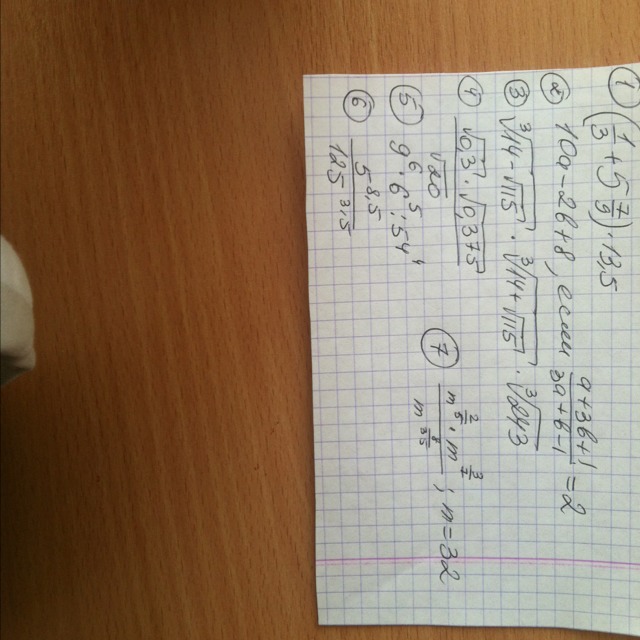 ① (1/3 + 5 7/9) · 13,5
② 10a - 2b + 8, если (a + 3b + 1)/(3a + b - 1) = 2
③ ∛(14 - √115) · ∛(14 + √115) · ∛243
④ (√0,3 · √0,375)/√20
⑤ 9⁶ · 6⁵ : 54⁴
⑥ 5^8,5 / 125^3,5
⑦ (m^2/5 · m^3/7)/(m^8/35) ; m = 32